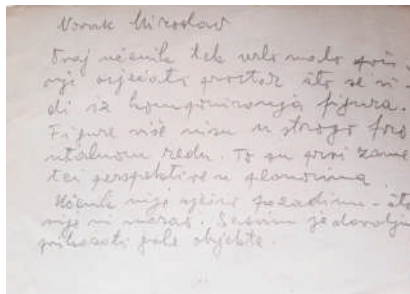 Novak Miroslav
Ovaj učenik tek vrlo malo poči-
nje osjećati prostor što se vi-
di iz komponiranja figura.
Figure više nisu u strogo fro
ntalnom redu. To su prvi zame
tci perspektive u planovima.
Učenik nije riješio pozadinu - što
nije ni morao. Sasvim je dovoljno
prikazati gole objekte.